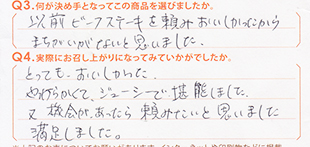 Q3.何が決め手となってこの商品を選びましたか。
以前ビーフステーキを頼みおいしかったから
まちがいがないと思いました。
Q4.実際にお召し上がりになってみていかがでしたか。
とっても、おいしかった。
やわらかくて、ジューシーで堪能しました。
又機会が、あったら頼みたいと思いました
満足しました。